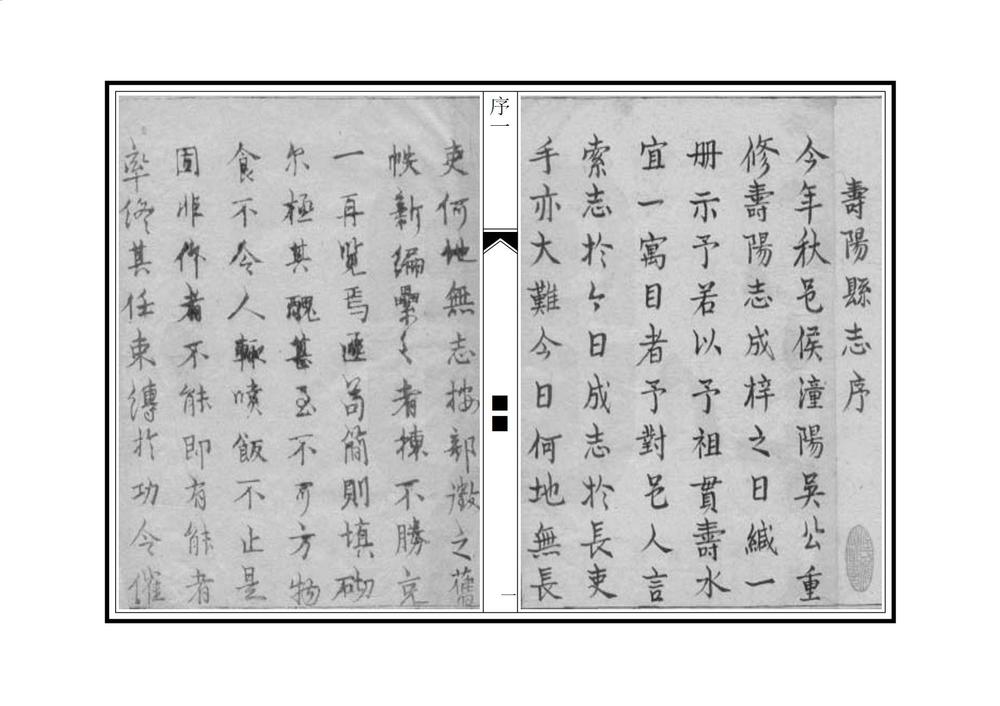 壽陽縣志序
今年秋邑侯潼陽吳公重
修壽陽志成梓之日緘一
冊示予若以予祖貫壽水
宜一寓目者予對邑人言
索志於今日成志於長吏
手亦大難今日何地無長
序一
一
吏何地無志按部徵之舊
帙新編纍〻者揀不勝
一再覽焉匪苟簡則填砌
尔極其醜甚至不可方物
食不令人輒噴飯不止是
固非作者不能即有能者
率終其任束縛於功令催